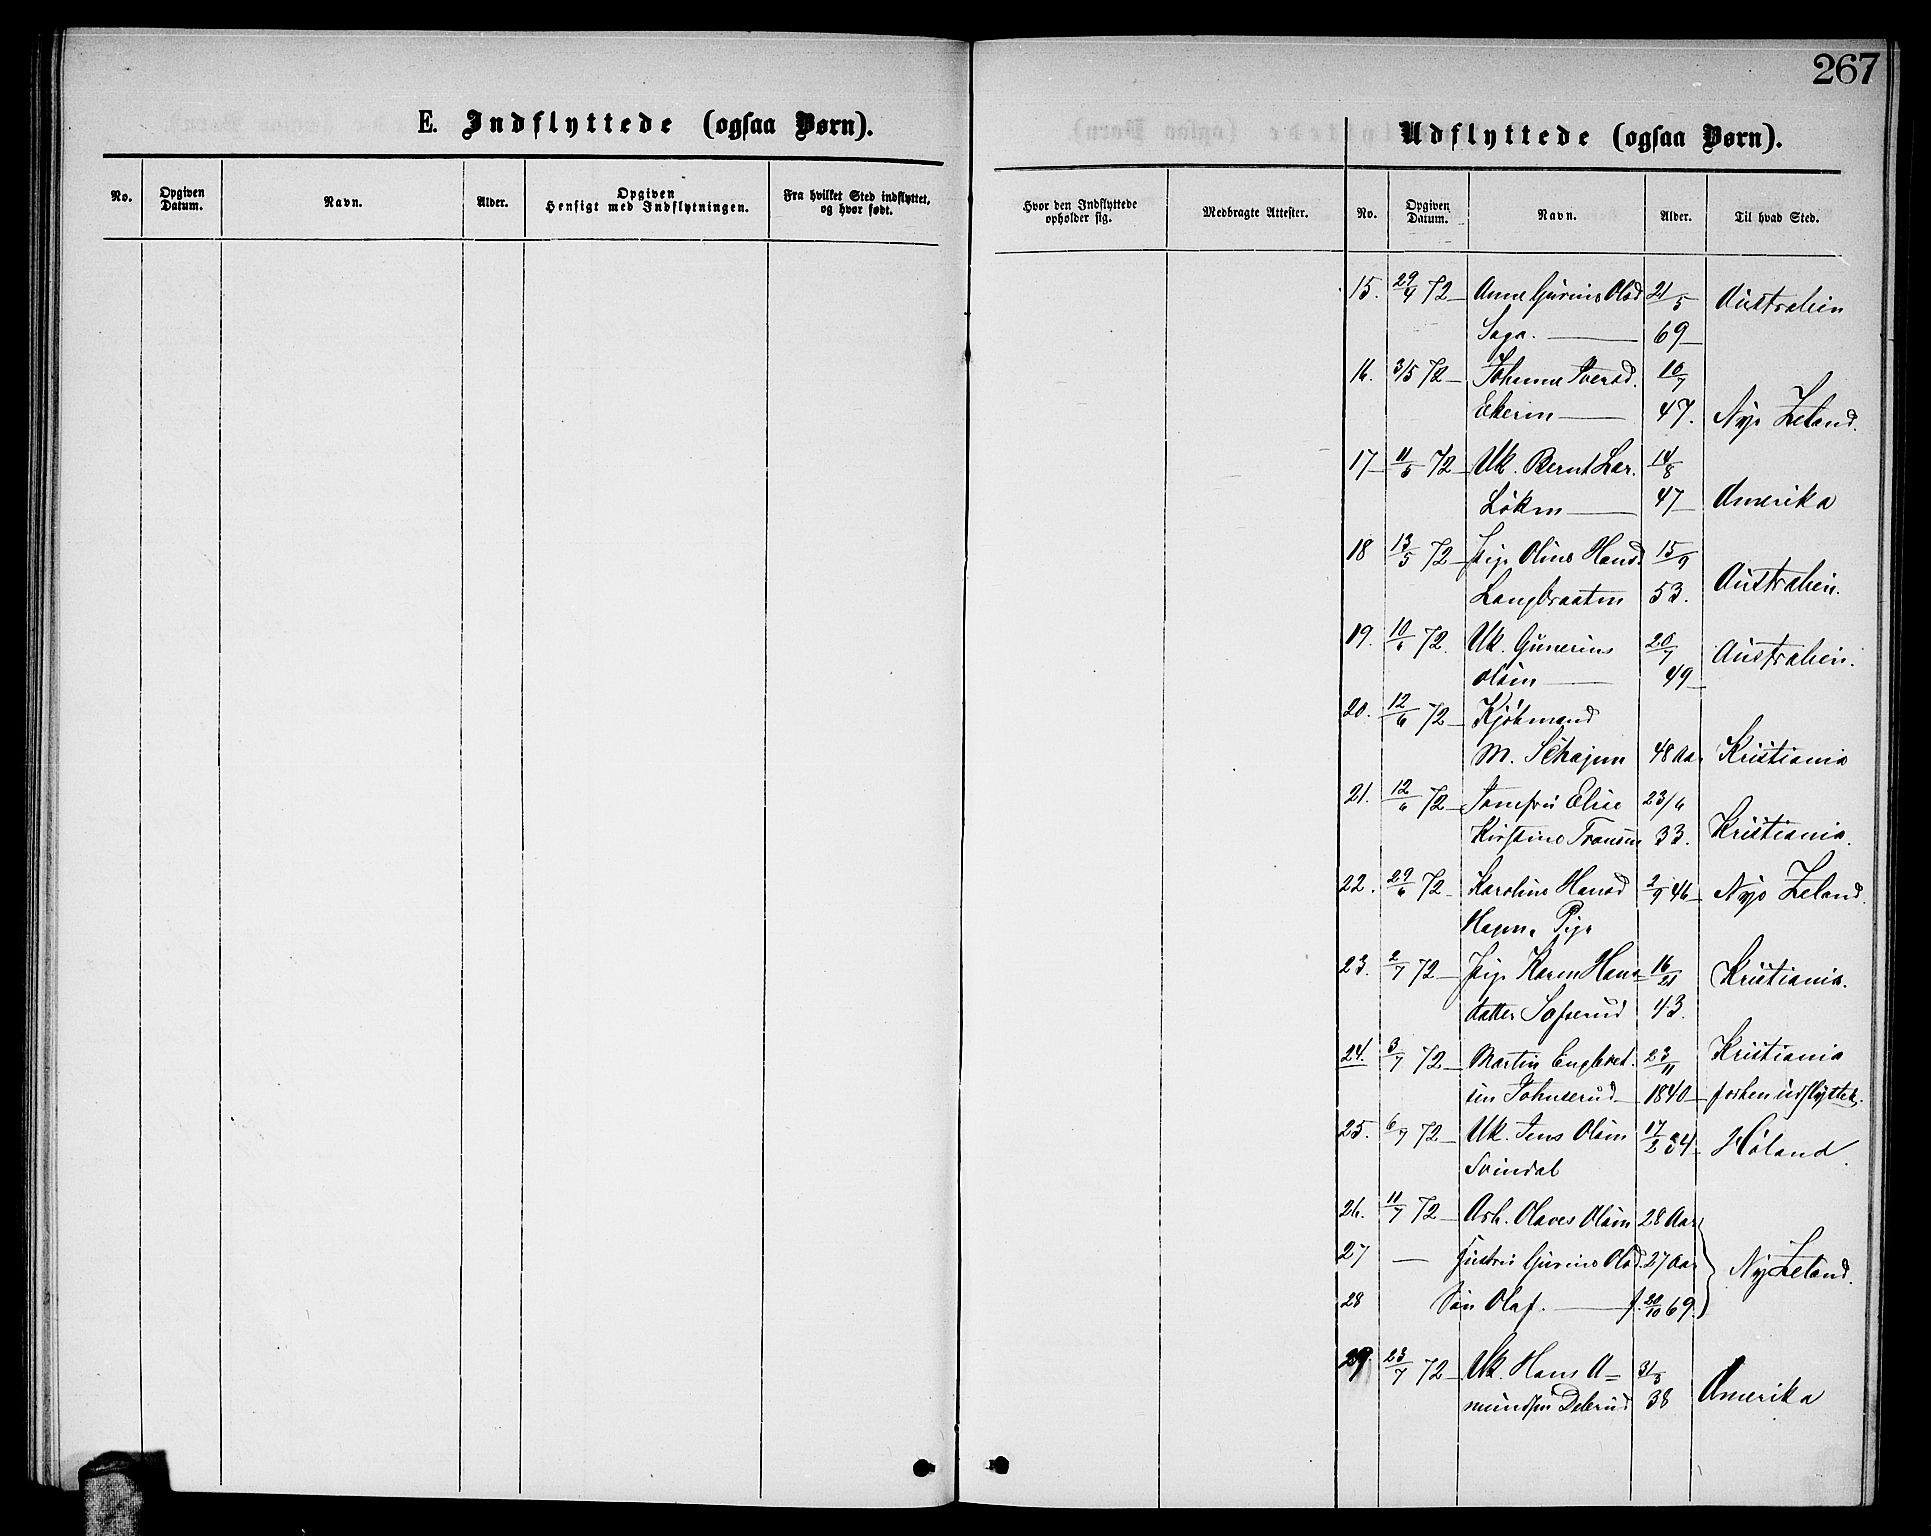 267
E. Indflyttede (ogsaa Børn).
No. Opgiven Datum. Navn. Alder. Opgiven Hensigt med Indflytningen. Fra hvilket Sted indflyttet, og hvor født.
Hvor den Indflyttede opholder sig. Medbragte Attester.
Udflyttede (ogsaa Børn).
No. Opgiven Datum. Navn. Alder. Til hvad Sted.
15. 29/4 72 Anne Gurine Olsd 21/5 Australien
Saga. 69
16. 3/5 72 Johanne Iversd. 10/7
Ekern 47. Nye Zeland.
17 11/5 72 Uk. Bernt Lar. 14/8
Løken 47 Amerika
18 13/5 72 Pige Oline Hansd. 15/9 Australien.
Langbraaten 53.
19. 10/6 72. Uk. Gunerius 20/7 Australien.
Olsen 49
20. 12/6 72 Kjøbmand
M. 48 Aar Kristiania
21. 12/6 72 Jomfru Elise 23/6
Kirstine 33. Kristiania.
22. 29/6 72 Karoline Hansd 2/9 46 Nye Zeland.
Pige
23. 2/7 72 Pige Karen Hans= 16/21 Kristiania.
datter 43.
24. 3/7 72 Martin Engebret. 23/11 Kristiania
sen Johnserud 1840 forhen udflyttet.
25. 6/7 72 Uk. Jens Olsen 17/2 34 Høland.
Svindal
26. 11/7 72 Arb. Olaves Olsen 28 Aar
27 — Hustru Gurine Olsd. 27 Aar Ny Zeland.
28 Søn Olaf. f. 20/10 69.
29. 23/7 72 Uk. Hans A= 31/3
mundsen 38 Amerika